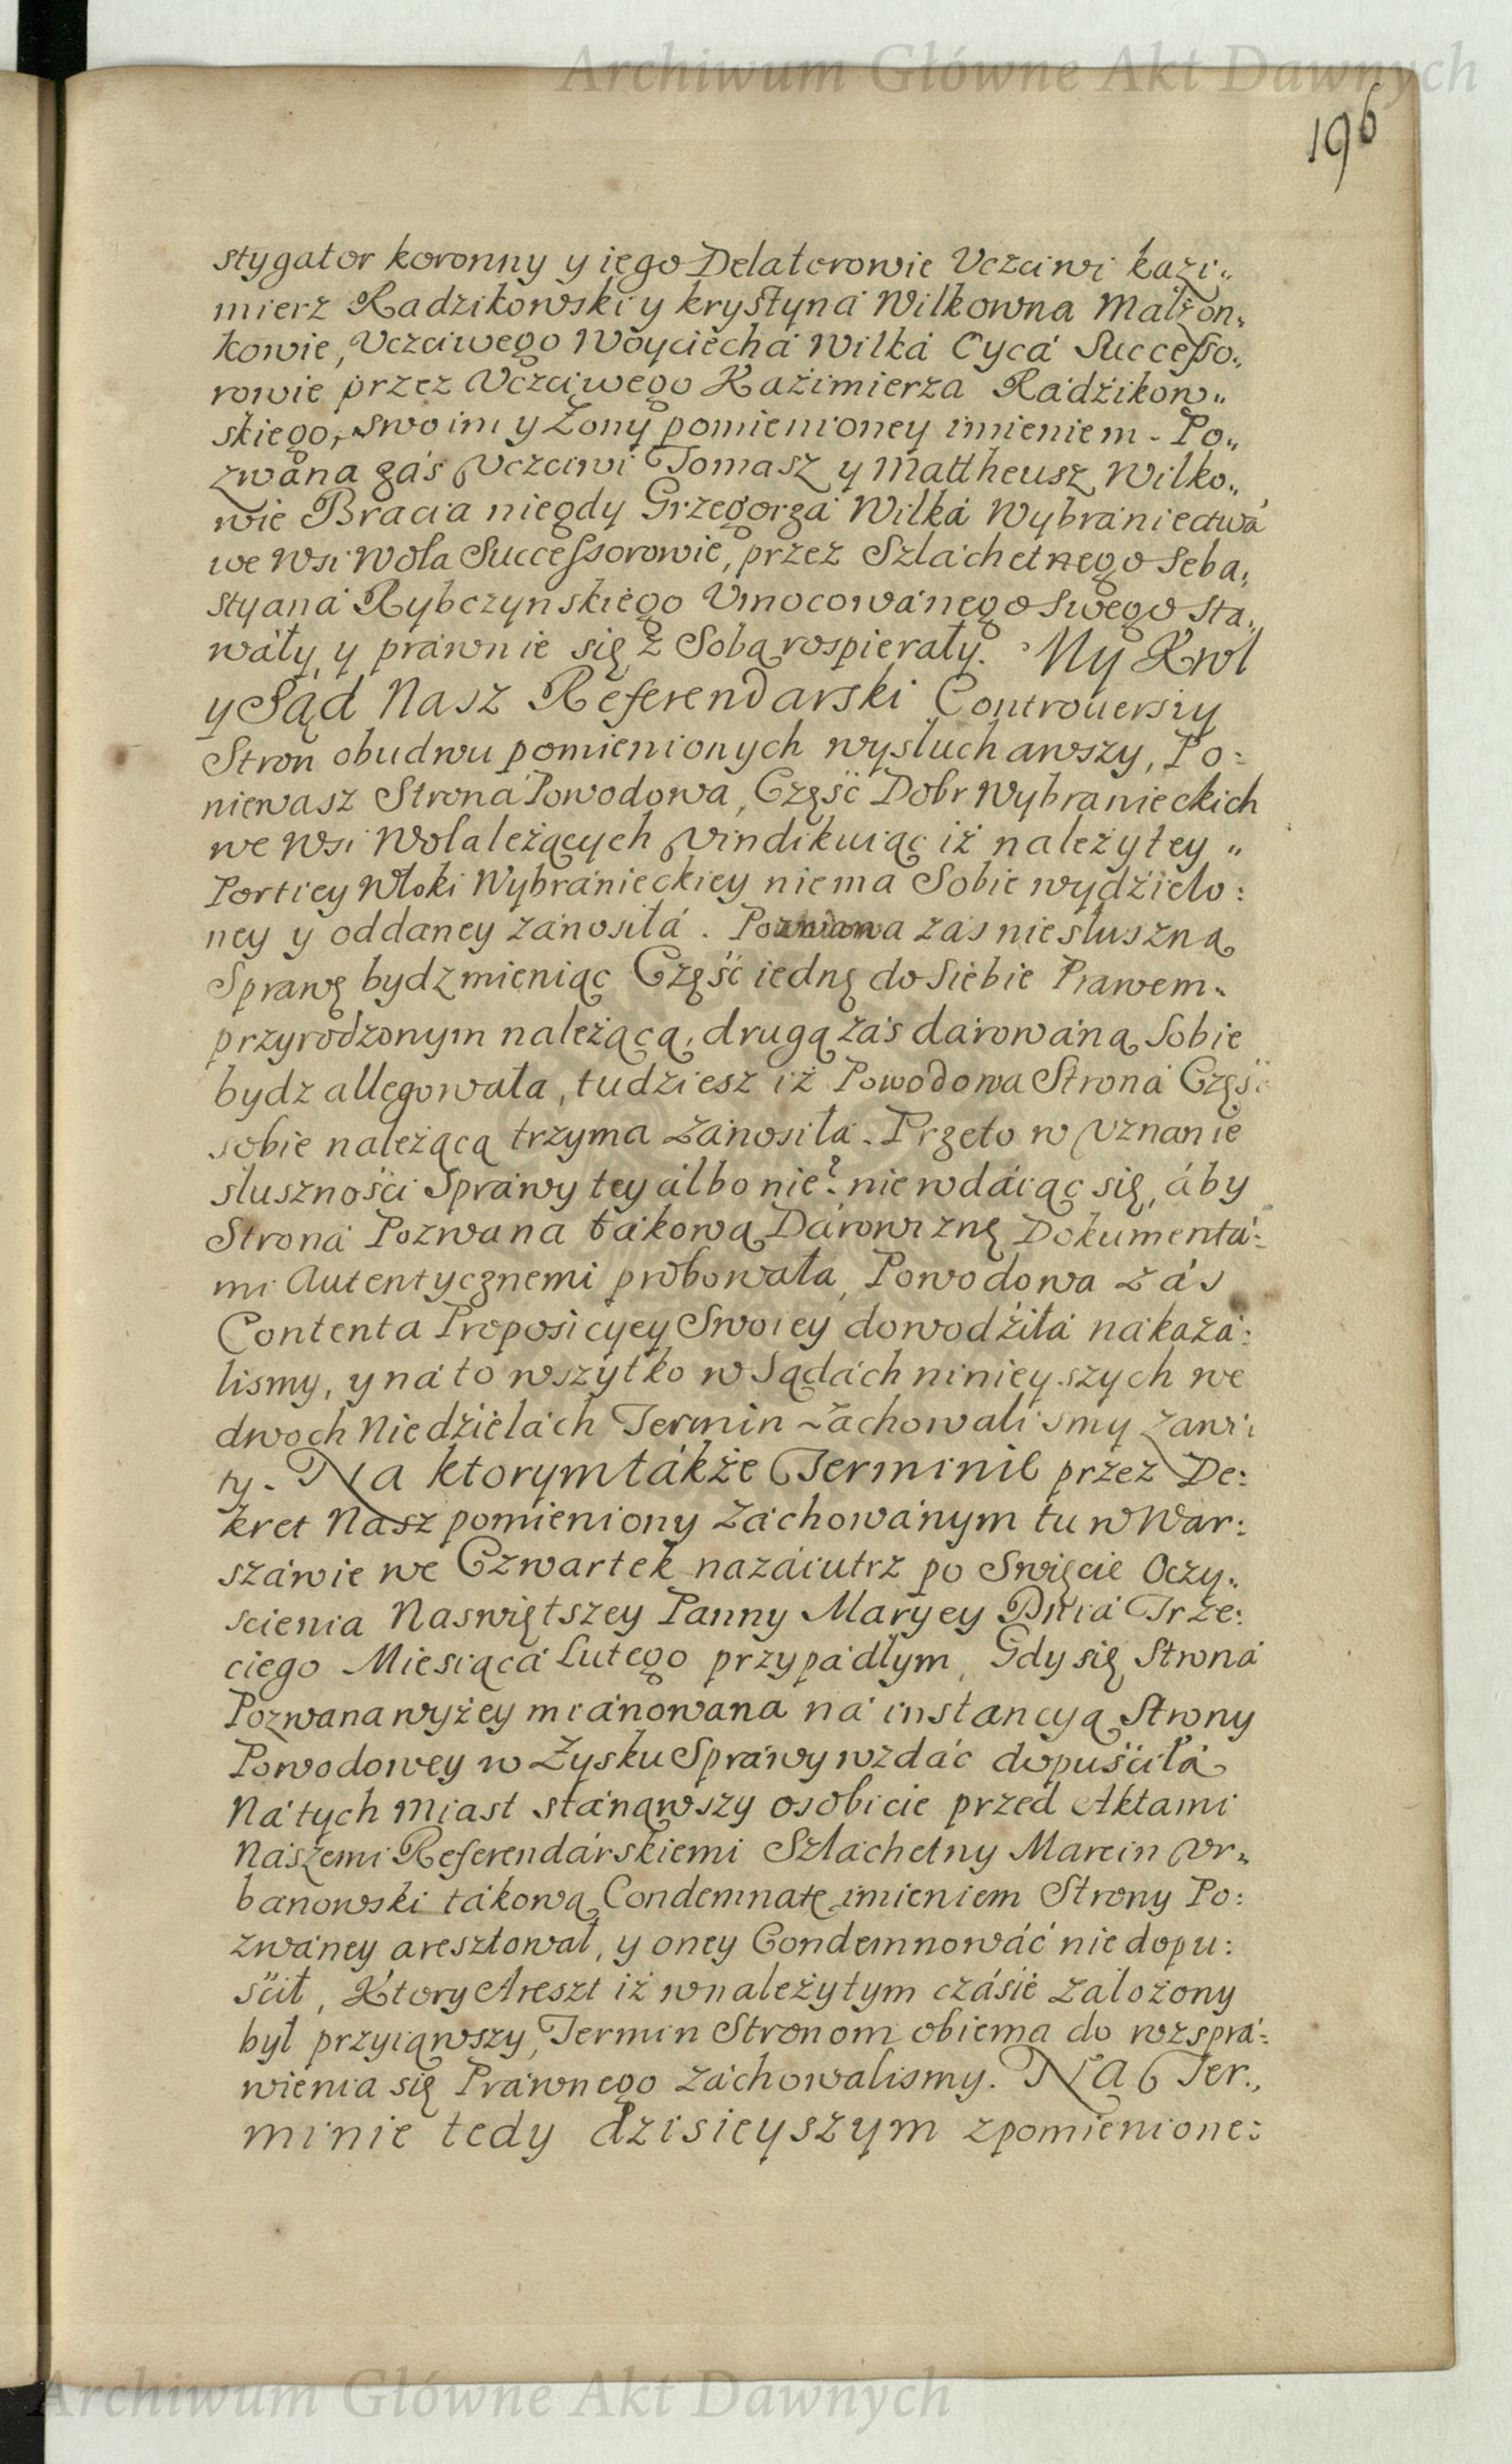 Archiwum Główne Akt Dawnych
196
stygator koronny y iego Delatorowie Vczciwi Kazi„
mierz Radzikowski y Krystyna Wilkowna Małżon„
kowie, Vczciwego Woyciecha Wilka Oyca Successo„
rowie przez Vczciwego Kaźimierza Radźikow„
skiego, swoim y Żony pomienioney imieniem. Po„
zwana zaś Vczciwi Tomasz y Mattheusz Wilko„
wie Bracia niegdy Grzegorza Wilka Wybraniectwa
we Wsi Wola Successorowie, przez Szlachetnego Seba„
styana Rybczynskiego Vmocowanego Swego sta„
wały y prawnie się z Sobą rospierały. My Krol
y Sąd Nasz Referendarski Controuersiy
Stron obudwu pomienionych wysłuchawszy, Po:
niewasz Strona Powodowa, Część Dobr Wybranieckich
we Wsi Wola leżących vindikuiąc iż należytey „
Portiey Włoki Wybranieckiey niema Sobie wydźielo:
ney y oddaney zanosiła. Pozwana zas niesłuszną
Sprawę bydz mieniąc Część iednę do Siebie Prawem
przyrodzonym należącą, drugą zaś darowaną Sobie
bydz allegowała, tudziesz iż Powodowa Strona Część
sobie należącą trzyma zanosiła. Przeto w Vznanie
słuszności Sprawy tey albo nie? nie wdaiąc się, aby
Strona Pozwana takową Darowiznę Dokumenta:
mi Autentycznemi probowała, Powodowa zaś
Contenta Proposicyey Swoiey dowodźiła nakaza:
lismy, y na to wszytko w Sądach ninieyszych we
dwoch Niedzielach Termin zachowalismy zawi
ty. Na ktorym także Terminie przez De:
kret Nasz pomieniony zachowanym tu w War:
szawie we Czwartek nazaiutrz po Swięcie Oczy„
scienia Naswiętszey Panny Maryey Dnia Trze:
ciego Miesiąca Lutego przypadłym, Gdy się Strona
Pozwana wyżey mianowana na instancyą Strony
Powodowey w Zysku Sprawy wzdać dopuściła
Natych miast stanąwszy osobicie przed Aktami
Naszemi Referendarskiemi Szlachetny Marcin Vr„
banowski takową Condemnatę imieniem Strony Po:
zwaney aresztował, y oney Condemnować nie dopu:
ścił, Ktory Areszt iż w należytym czásie założony
był przyiąwszy, Termin Stronom obiema do rozspra:
wienia się Prawnego zachowalismy. Na Ter„
minie tedy dzisieyszym z pomienione:
Archiwum Główne Akt Dawnych